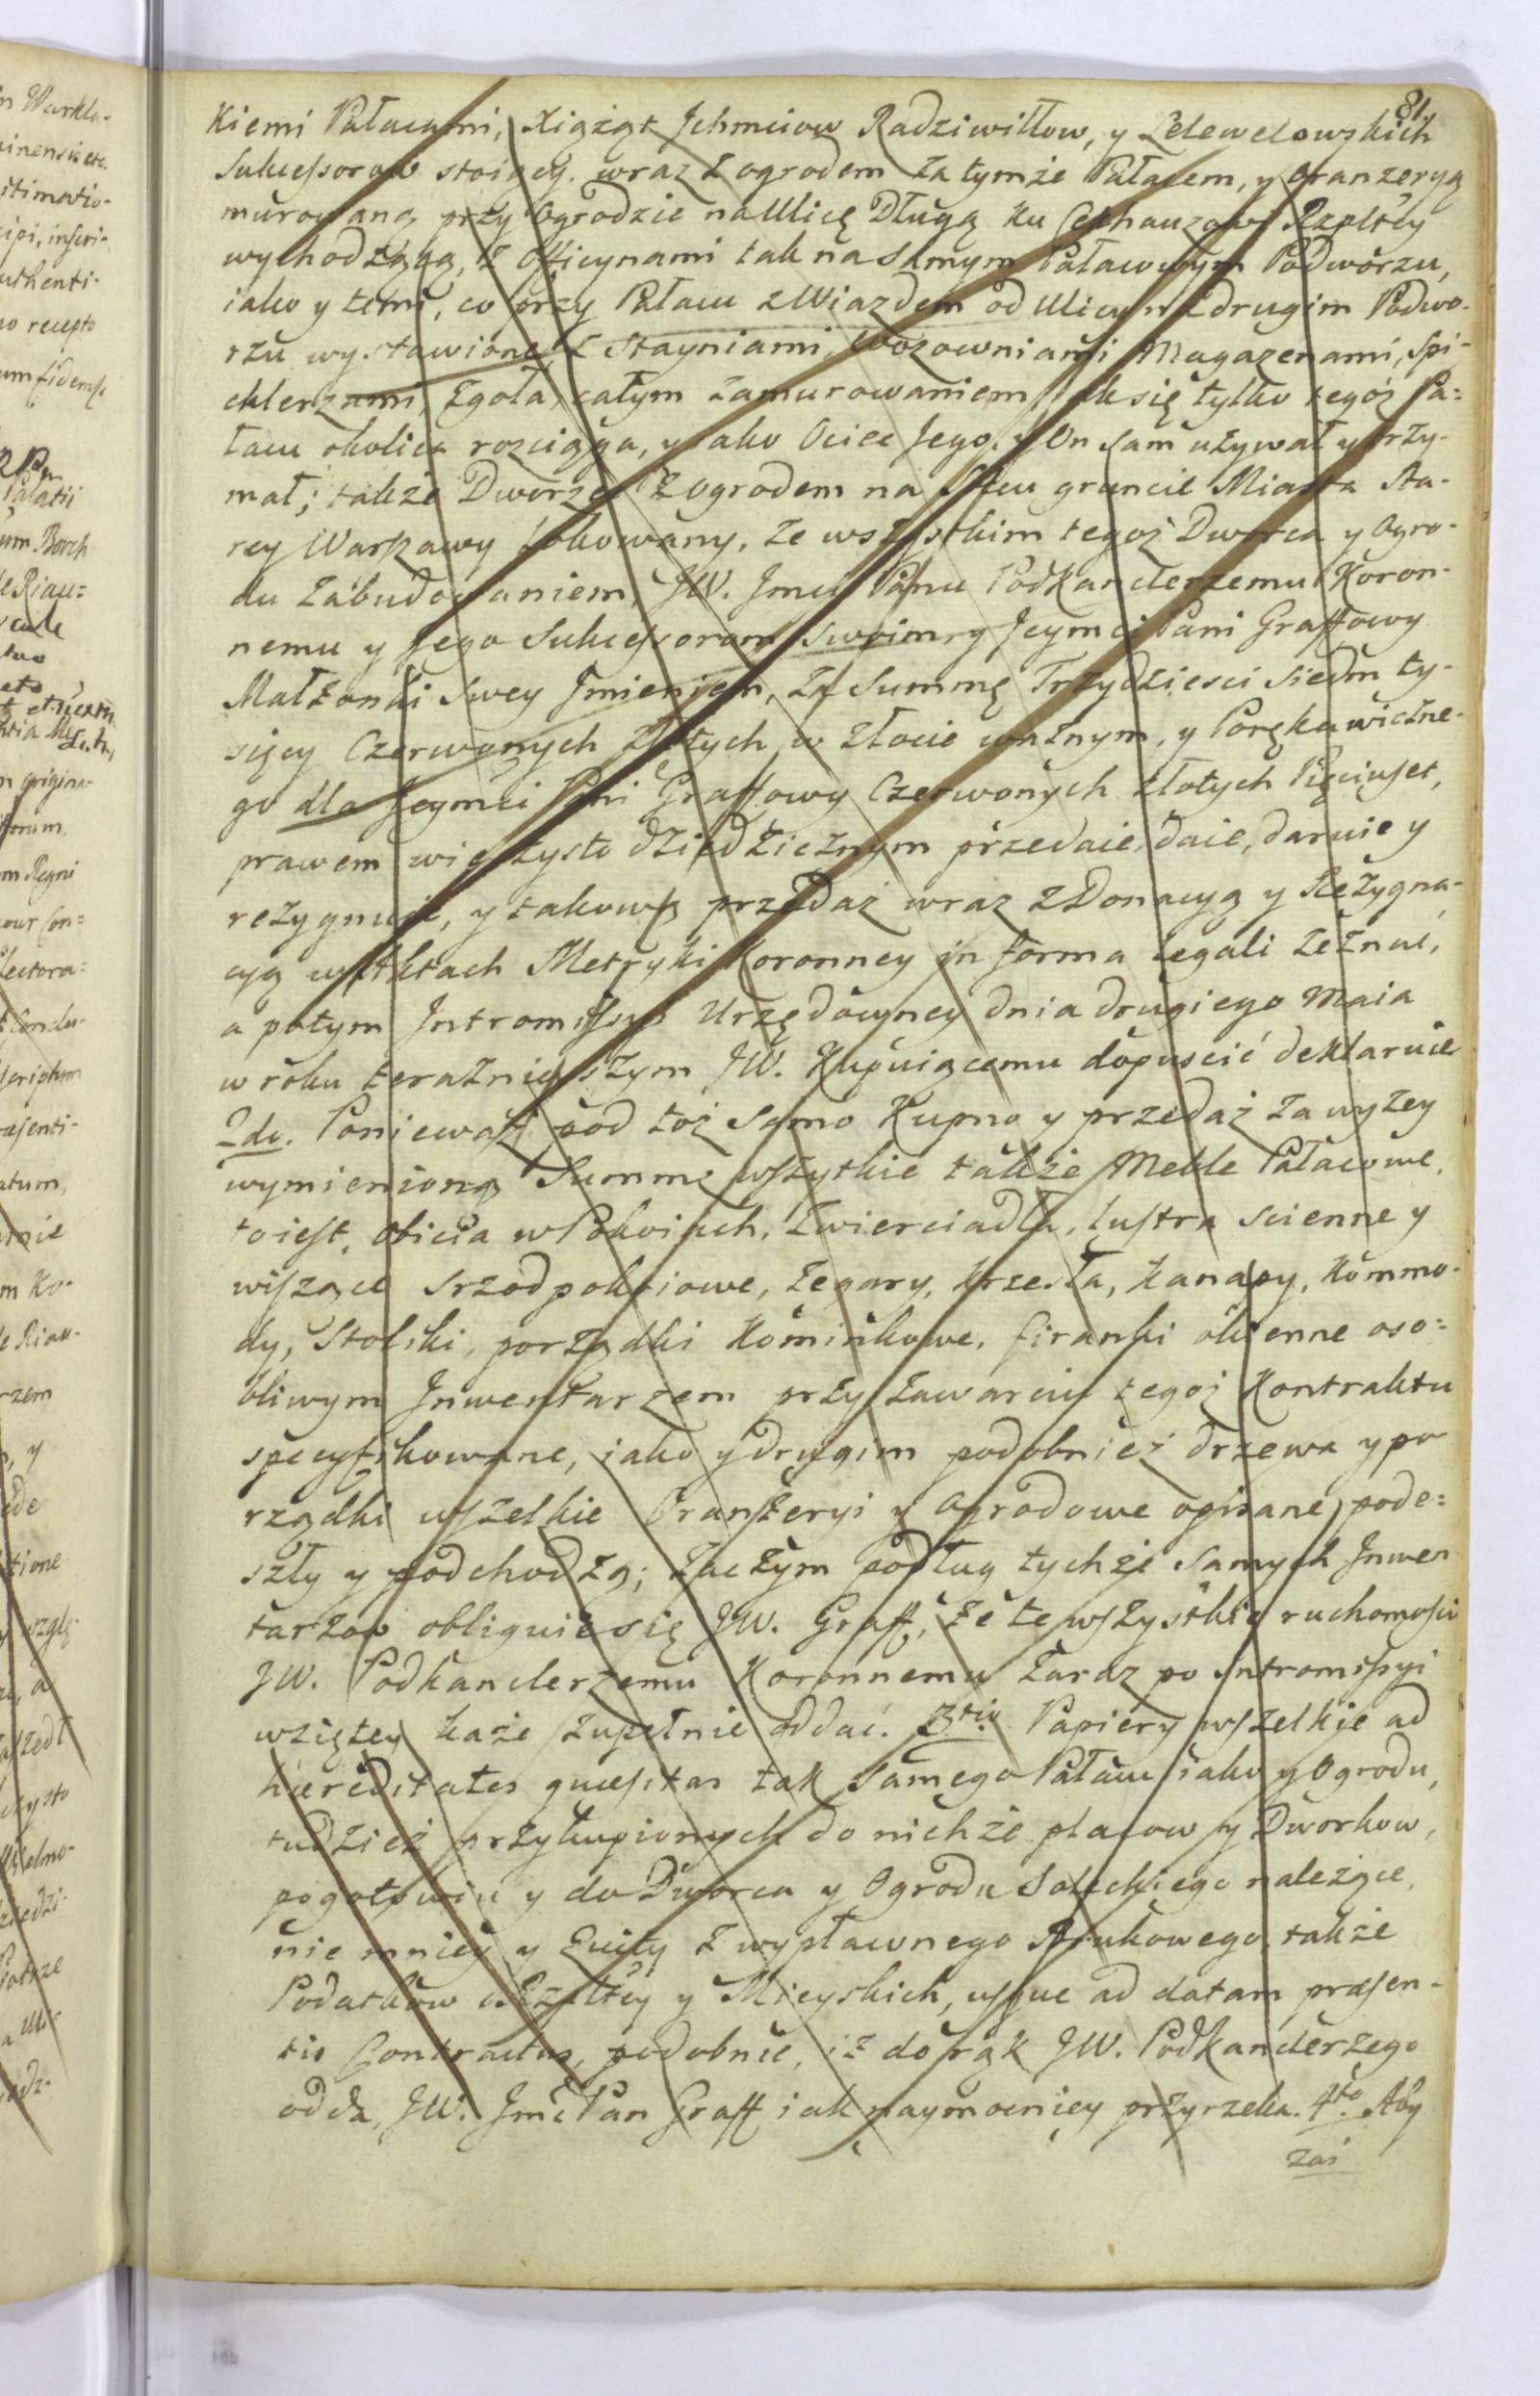 81.
Kiemi Pałacami, Xiążąt Jchmciow Radziwiłłow, y Lelewelowskich
Sukcessorow stoiący. wraz z ogrodem za tymże Pałacem, y Oranżeryą
murowaną przy Ogrodzie na Ulicę Długą ku Cekhauzowi Rzpltey
wychodzącą, z Officynami tak na samym Pałacowym Podworzu,
iako y temi, co przy Pałacu z Wiazdem od Ulicy na drugim Podwo-
rzu wystawione, z Stayniami, Wozowniami Magazenami, Spi-
chlerzami, zgoła, całym zamurowaniem iak się tylko tegoż Pa-
łacu okolica rozciąga, y iako Ociec Jego, y On sam używał y trzy-
mał; także Dworzec z Ogrodem na Solcu gruncie Miasta Sta-
rey Warszawy lokowany, ze wszystkim tegoż Dworca y Ogro-
du Zabudowaniem, JW. Jmci Panu Podkanclerzemu Koron-
nemu y Jego Sukcessorom swoim, y Jeymci Pani Graffowy
Małżonki swey Jmieniem, za Summę Trzydziesci siedm ty-
sięcy Czerwonych Złotych w Złocie ważnym, y Porękawiczne-
go dla Jeymci Pani Graffowy Czerwonych złotych Pięciuset,
prawem wieczysto dziedzicznym przedaie, daie, daruie y
rezygnuie, y takową przedaż wraz z Donacyą y Rezygna-
cyą w Aktach Metryki Koronney in forma legali zeznać,
a potym Intromissyi Urzędowney dnia drugiego Maia
w roku teraznieyszym JW. Kupuiącemu dopuscić deklaruie
2do. Poniewasz pod toż samo Kupno y przedaż za wyżey
wymienioną Summę wszytkie także Meble Pałacowe,
toiest, obicia w Pokoiach, Zwierciadła, lustra scienne y
wiszące srzodpokoiowe, Zegary, krzesła, kanapy, Kommo-
dy, Stoliki, porządki Kominkowe, firanki okienne oso-
bliwym Inwentarzem przy zawarciu tegoż Kontraktu
specyfikowane, iako y drugim podobnież drzewa y po
rządki wszelkie Oranżeryi y Ogrodowe opisane, pode-
szły y podchodzą; zaczym podług tychże samych Inwen
tarzow obliguie się JW. Graff, że te wszystkie ruchomosci
JW. Podkanclerzemu Koronnemu zaraz po Intromissyi
wziętey każe zupełnie oddać. 3tio. Papiery wszelkie ad
hæreditates quæsitas tak samego Pałacu iako y Ogrodu,
tudzież przykupionych do nichże placow y Dworkow,
pogotowiu y do Dworca y Ogrodu Soleckiego należące,
nie mniey y Quity z wypławnego Brukowego, także
Podatkow Rzpltey y Mieyskich, usque ad datam præsen-
tis Contractus, podobnie, iż do rąk JW. Podkanclerzego
odda, JW. Jmć Pan Graff iak naymocniey przyrzeka. 4to. Aby
zaś